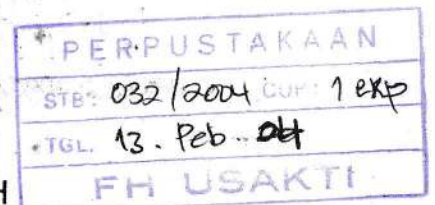 PERPUSTAKAAN
STB: 032/2004 CUP: 1 exp
TGL. 13. Peb. 04
FH USAKTI
H